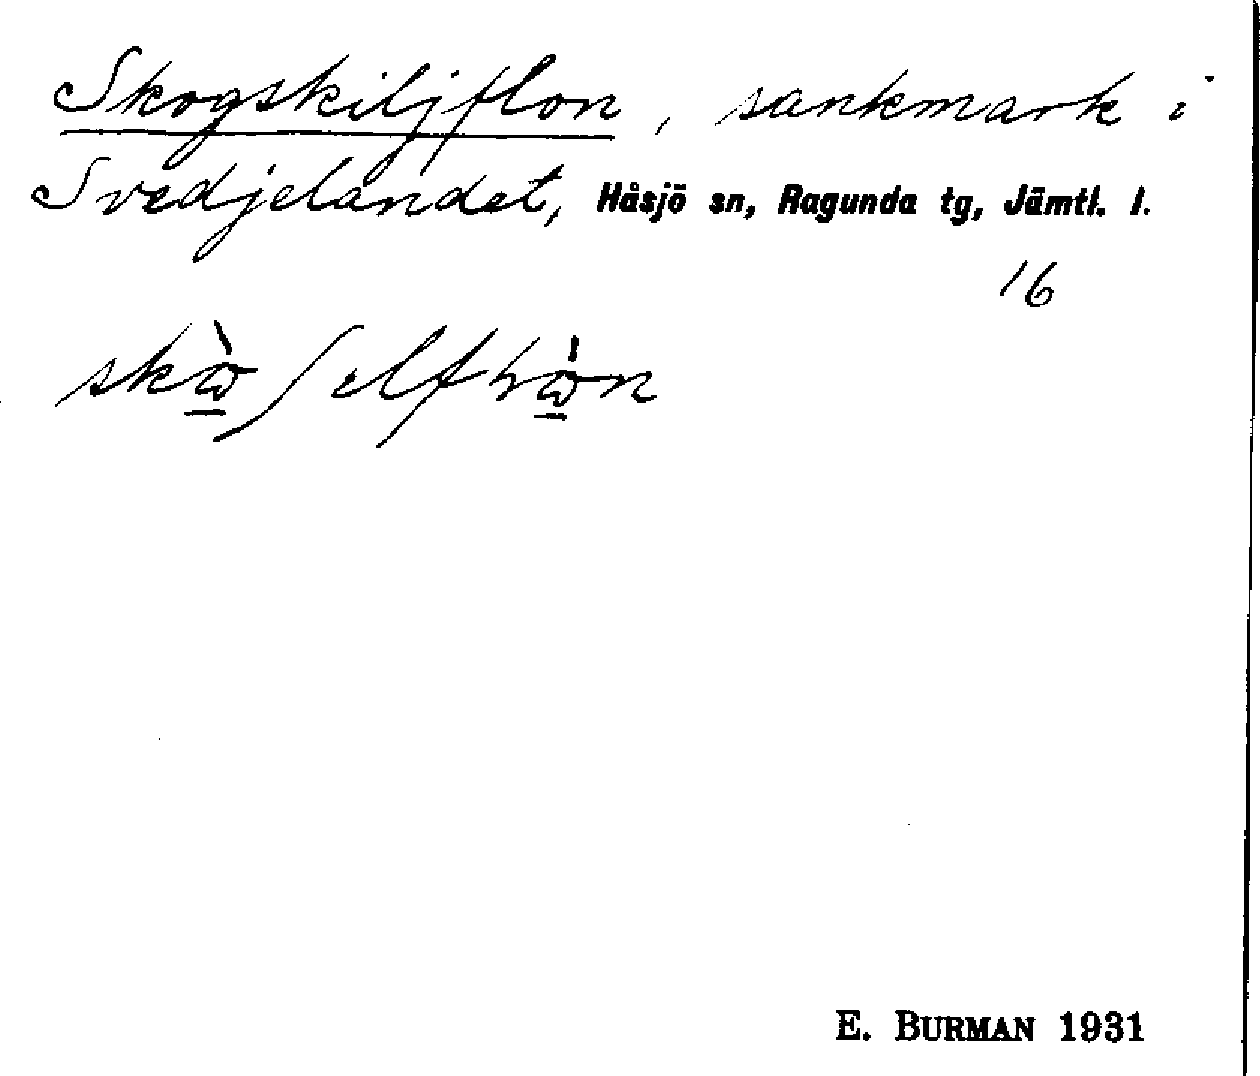 Skogskiljflon, sankmark i
Svedjelandet, Håsjö sn, Ragunda tg, Jämtl. l.
16
E. BURMAN 1931